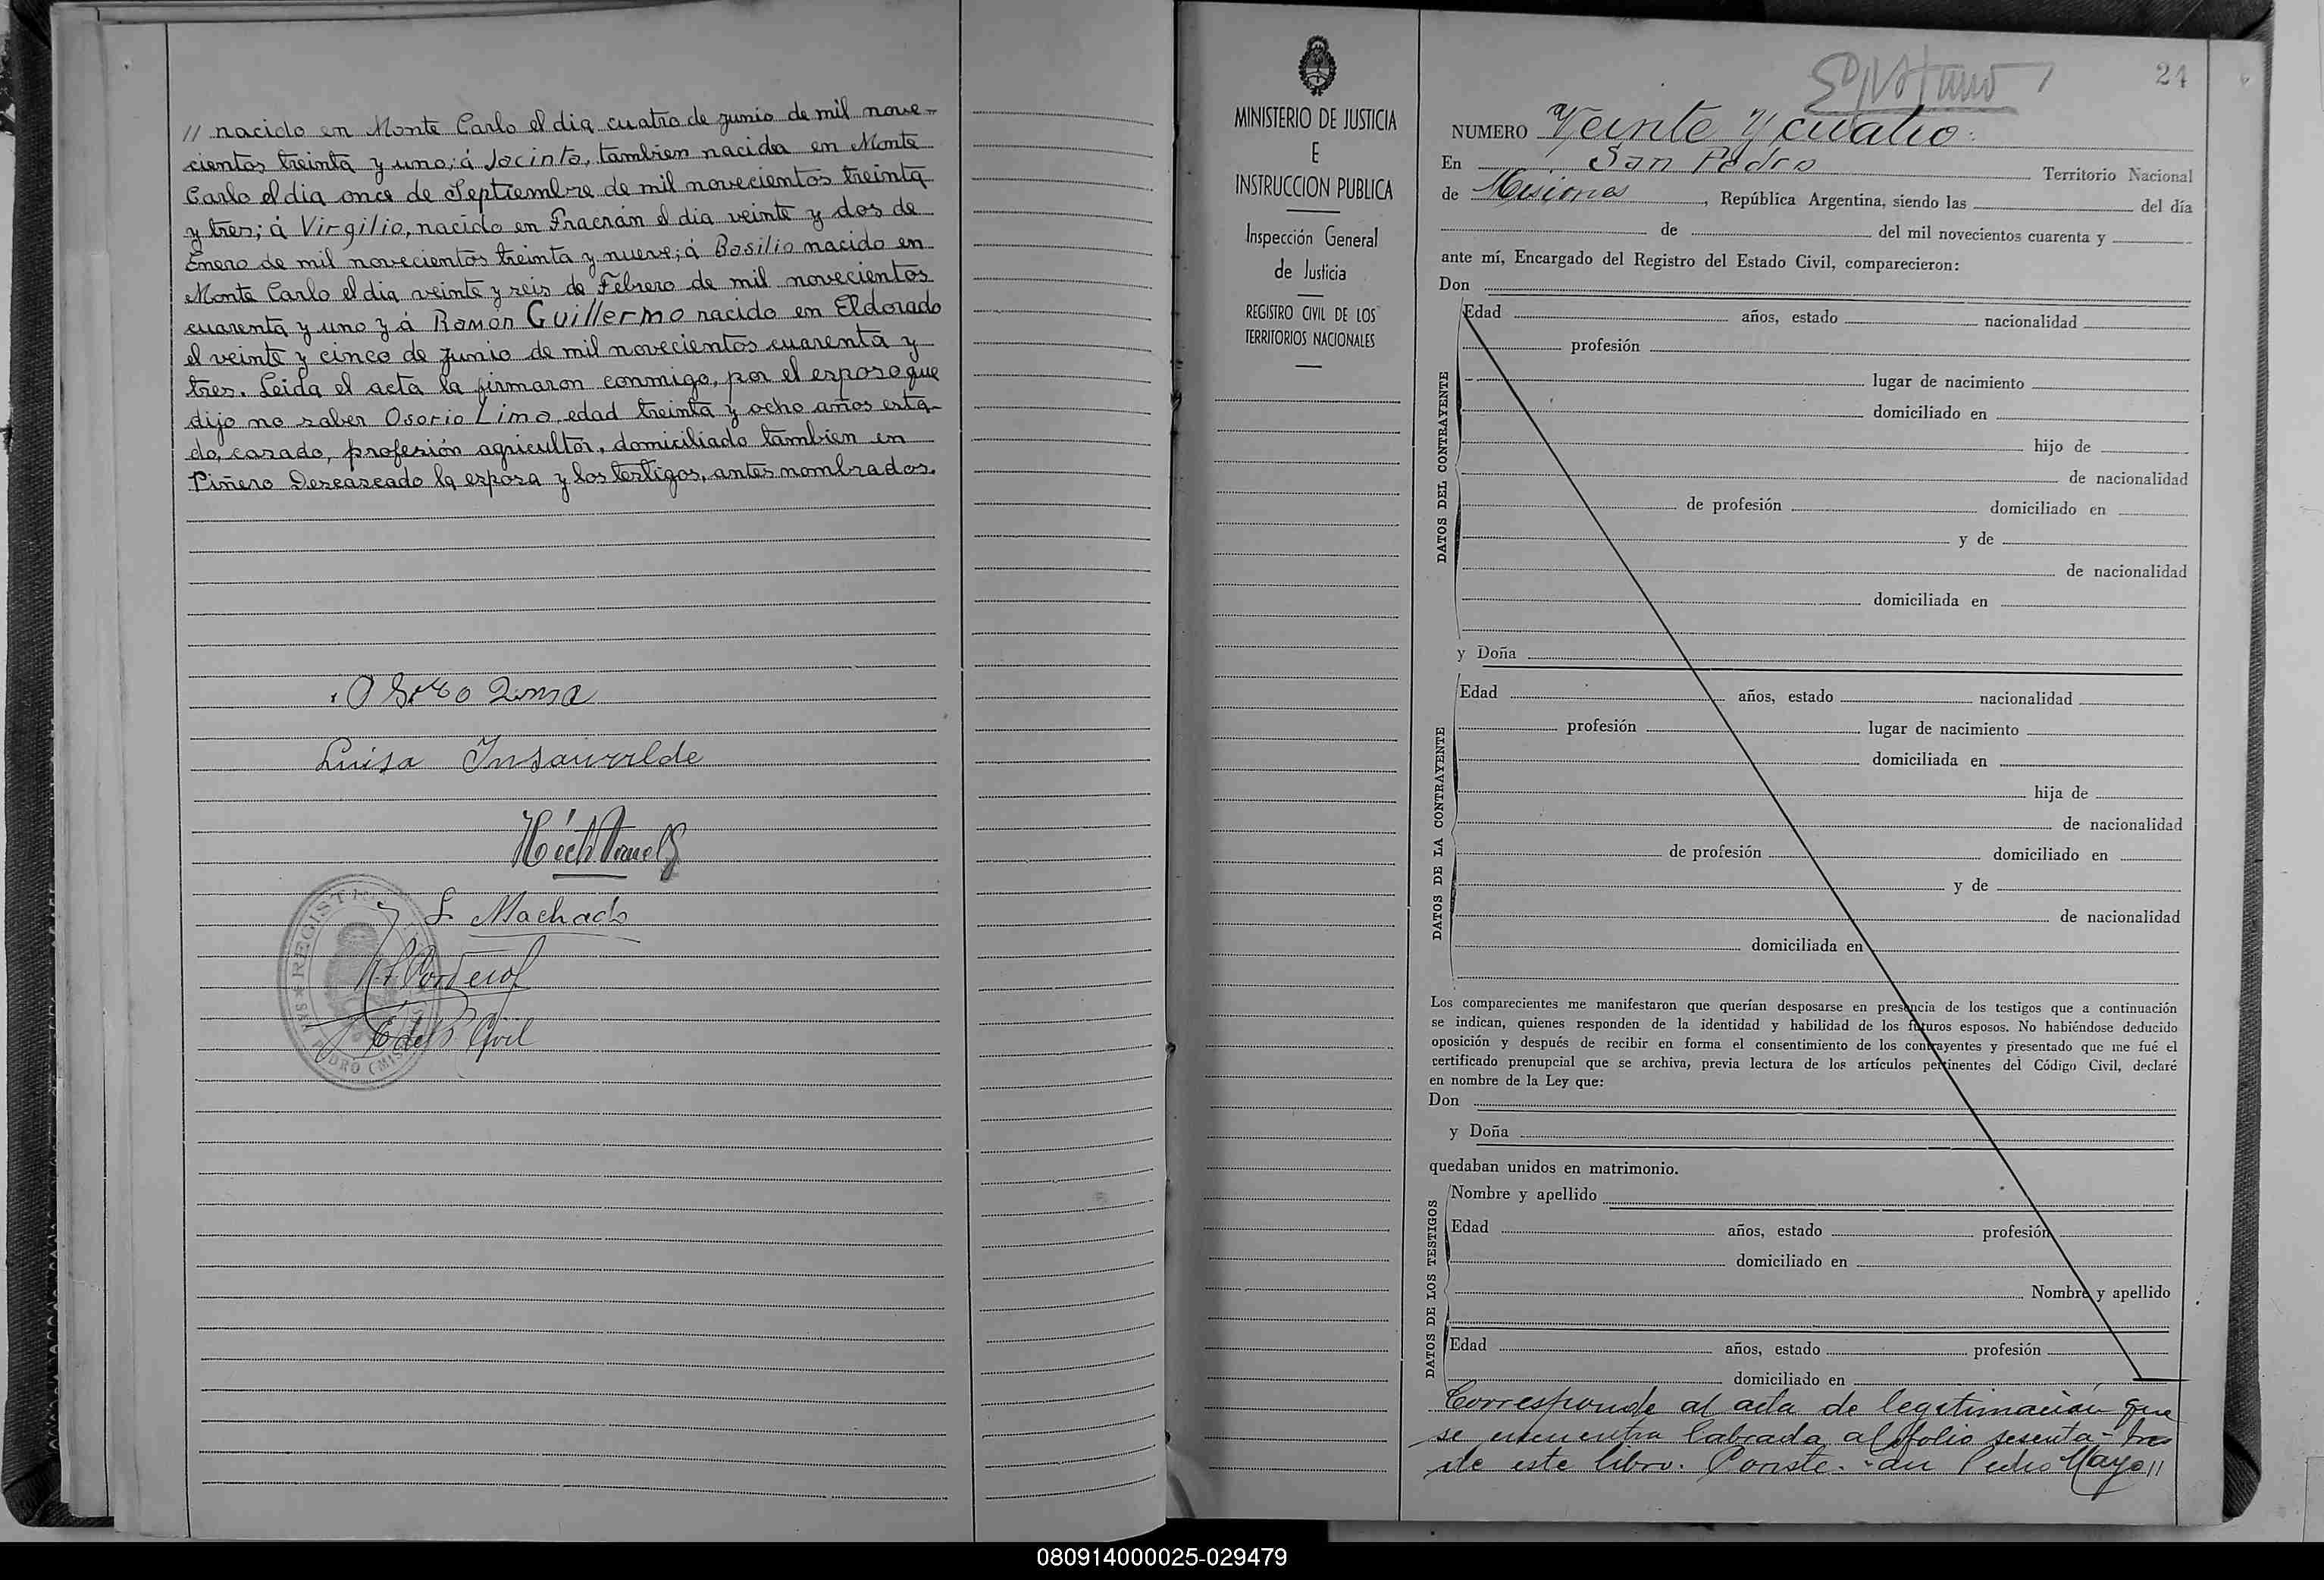 // nacido en Monte Carlo el dia cuatro de junio de mil nove-
cientos treinta y uno; á Jacinto, tambien nacido en Monte
Carlo el dia once de Septiembre de mil novecientos treinta
y tres; á Virgilio, nacido en Fracrán el dia veinte y dos de
Enero de mil novecientos treinta y nueve; á Basilio nacido en
Monte Carlo el dia veinte y seis de Febrero de mil novecientos
cuarenta y uno y á Ramón Guillermo nacido en Eldorado
el veinte y cinco de junio de mil novecientos cuarenta y
tres. Leida el acta la firmaron conmigo, por el esposo que
dijo no saber Osorio Lima, edad treinta y ocho años esta-
do, casado, profesión agricultor, domiciliado tambien en
Piñero Descaseado la esposa y los testigos, antes nombrados.
Osorio Lima
Luisa Insaurralde
L. Machado
E. del R. Civil
MINISTERIO DE JUSTICIA
E
INSTRUCCION PUBLICA
Inspección General
de Justicia
REGISTRO CIVIL DE LOS
TERRITORIOS NACIONALES
24
NUMERO Veinte y cuatro.
En San Pedro Territorio Nacional
de Misiones, República Argentina, siendo las del día
de del mil novecientos cuarenta y
ante mí, Encargado del Registro del Estado Civil, comparecieron:
Don
DATOS DEL CONTRAYENTE
Edad años, estado nacionalidad
profesión
lugar de nacimiento
domiciliado en
hijo de
de nacionalidad
de profesión domiciliado en
y de
de nacionalidad
domiciliada en
y Doña
DATOS DE LA CONTRAYENTE
Edad años, estado nacionalidad
profesión lugar de nacimiento
domiciliada en
hija de
de nacionalidad
de profesión domiciliado en
y de
de nacionalidad
domiciliada en
Los comparecientes me manifestaron que querían desposarse en presencia de los testigos que a continuación
se indican, quienes responden de la identidad y habilidad de los futuros esposos. No habiéndose deducido
oposición y después de recibir en forma el consentimiento de los contrayentes y presentado que me fué el
certificado prenupcial que se archiva, previa lectura de los artículos pertinentes del Código Civil, declaré
en nombre de la Ley que:
Don
y Doña
quedaban unidos en matrimonio.
DATOS DE LOS TESTIGOS
Nombre y apellido
Edad años, estado profesión
domiciliado en
Nombre y apellido
Edad años, estado profesión
domiciliado en
Corresponde al acta de legitimación que
se encuentra labrada al folio sesenta-tres
de este libro. Conste.- San Pedro Mayo //
080914000025-029479